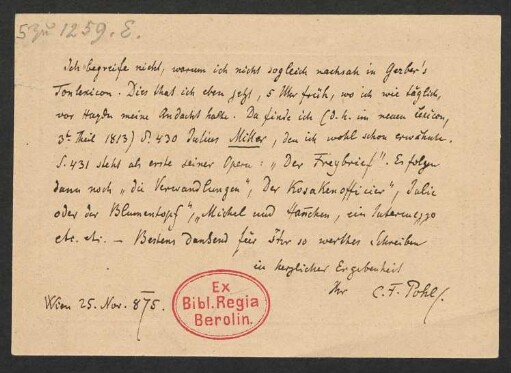 5 zu 1259. E.
Ich begreife nicht, warum ich nicht sogleich nachsah in Gerber's
Tonlexicon. Dies that ich eben jetzt, 5 Uhr früh, wo ich wie täglich,
vor Haydn meine Andacht halte. Da finde ich (d. h. im neuen Lexicon,
3t Theil 1813) S. 430 Julius Miller, den ich wohl schon erwähnte.
S. 431 steht als erste seiner Opern: „Der Freybrief". Es folgen
dann noch „die Verwandlungen", Der Kosakenofficier", Julie
oder der Blumentopf", „Michel und Hañchen, ein Intermezzo
etc. etc. — Bestens dankend für Ihr so werthes Schreiben
in herzlicher Ergebenheit
Ihr C. F. Pohl.
Wien 25. Nov. 875.
Ex
Bibl. Regia
Berolin.